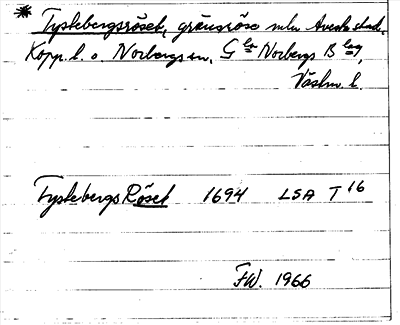 * Tyskebergsröset, gränsröse mln Avesta stad,
Kopp. l. o. Norbergs sn, Gla Norbergs Blag,
Västm. l.
Tyskebergs Röset 1694 LSA T 16
FW. 1966